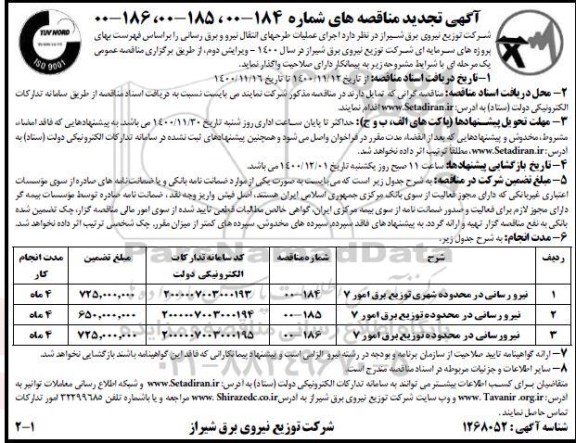 آگهی تجدید مناقصه های شماره ۱۸۴-۰۰، ۱۸۵-۰۰، ۱۸۶-۰۰
TUV NORD
ISO 9001
شرکت توزیع نیروی برق شیراز در نظر دارد اجرای عملیات طرحهای انتقال نیرو و برق رسانی را براساس فهرست بهای
پروژه های سرمایه ای شرکت توزیع نیروی برق شیراز در سال ۱۴۰۰ - ویرایش دوم، از طریق برگزاری مناقصه عمومی
یک مرحله ای با شرایط مشروحه زیر به پیمانکار دارای صلاحیت واگذار نماید.
۱-تاریخ دریافت اسناد مناقصه: از تاریخ ۱۴۰۰/۱۱/۱۲ تا تاریخ ۱۴۰۰/۱۱/۱۶
۲- محل دریافت اسناد مناقصه: مناقصه گرانی که تمایل دارند در مناقصه مذکور شرکت نمایند می بایست نسبت به دریافت اسناد مناقصه از طریق سامانه تدارکات
الکترونیکی دولت (ستاد) به آدرس: www.Setadiran.ir اقدام نمایند.
۳- مهلت تحویل پیشنهادها (پاکت های الف، ب و ج): حداکثر تا پایان ساعت اداری روز شنبه تاریخ ۱۴۰۰/۱۱/۳۰ می باشد به پیشنهادهایی که فاقد امضاء،
مشروط، مخدوش و پیشنهادهایی که بعد از انقضاء مدت مقرر در فراخوان واصل می شود و همچنین پیشنهادهای ثبت نشده در سامانه تدارکات الکترونیکی دولت (ستاد) به
آدرس: www.Setadiran.ir، مطلقا ترتیب اثر داده نخواهد شد.
۴- تاریخ بازگشایی پیشنهادها: ساعت ۱۱ صبح روز یکشنبه تاریخ ۱۴۰۰/۱۲/۰۱ می باشد.
۵- مبلغ تضمین شرکت در مناقصه: به شرح جدول زیر است که می بایست به صورت یکی از موارد ضمانت نامه بانکی و یا ضمانت نامه های صادره از سوی مؤسسات
اعتباری غیربانکی که دارای مجوز فعالیت از سوی بانک مرکزی جمهوری اسلامی ایران هستند، اصل فیش واریز وجه نقد، ضمانت نامه صادره توسط مؤسسات بیمه گر
دارای مجوز لازم برای فعالیت و صدور ضمانت نامه از سوی بیمه مرکزی ایران، گواهی خالص مطالبات قطعی تایید شده از سوی امور مالی مناقصه گزار، چک تضمین شده
بانکی به نفع مناقصه گزار تهیه و ارائه گردد. به پیشنهادهای فاقد سپرده، سپرده های مخدوش، سپرده های کمتر از میزان مقرر، چک شخصی ترتیب اثر داده نخواهد شد.
۶- مدت انجام: به شرح جدول زیر.
ردیف شرح شماره مناقصه کد سامانه تدارکات الکترونیکی دولت مبلغ تضمین مدت انجام کار
۱ نیرورسانی در محدوده شهری توزیع برق امور ۷ ۱۸۴-۰۰ ۲۰۰۰۰۰۷۰۰۳۰۰۰۱۹۳ ۷۲۵,۰۰۰,۰۰۰ ۴ ماه
۲ نیرو رسانی در محدوده توزیع برق امور ۷ ۱۸۵-۰۰ ۲۰۰۰۰۰۷۰۰۳۰۰۰۱۹۴ ۶۵۰,۰۰۰,۰۰۰ ۴ ماه
۳ نیرورسانی در محدوده توزیع برق امور ۷ ۱۸۶-۰۰ ۲۰۰۰۰۰۷۰۰۳۰۰۰۱۹۵ ۷۲۵,۰۰۰,۰۰۰ ۴ ماه
۷- ارائه گواهینامه تایید صلاحیت از سازمان برنامه و بودجه در رشته نیرو الزامی است و پیشنهاد پیمانکارانی که فاقد این گواهینامه باشند بازگشایی نخواهد شد.
۸- سایر اطلاعات و جزئیات مربوطه در اسناد مناقصه مندرج است.
متقاضیان برای کسب اطلاعات بیشتر می توانند به سامانه تدارکات الکترونیکی دولت (ستاد) به آدرس: www.Setadiran.ir و شبکه اطلاع رسانی معاملات توانیر به
آدرس: www.Tavanir.org.ir و وب سایت شرکت توزیع نیروی برق شیراز به آدرس: www.Shirazedc.co.ir مراجعه و یا با شماره تلفن ۳۲۲۹۹۶۸۵ امور تدارکات
تماس حاصل نمایند.
شناسه آگهی: ۱۲۶۸۰۵۲
شرکت توزیع نیروی برق شیراز
۲-۱